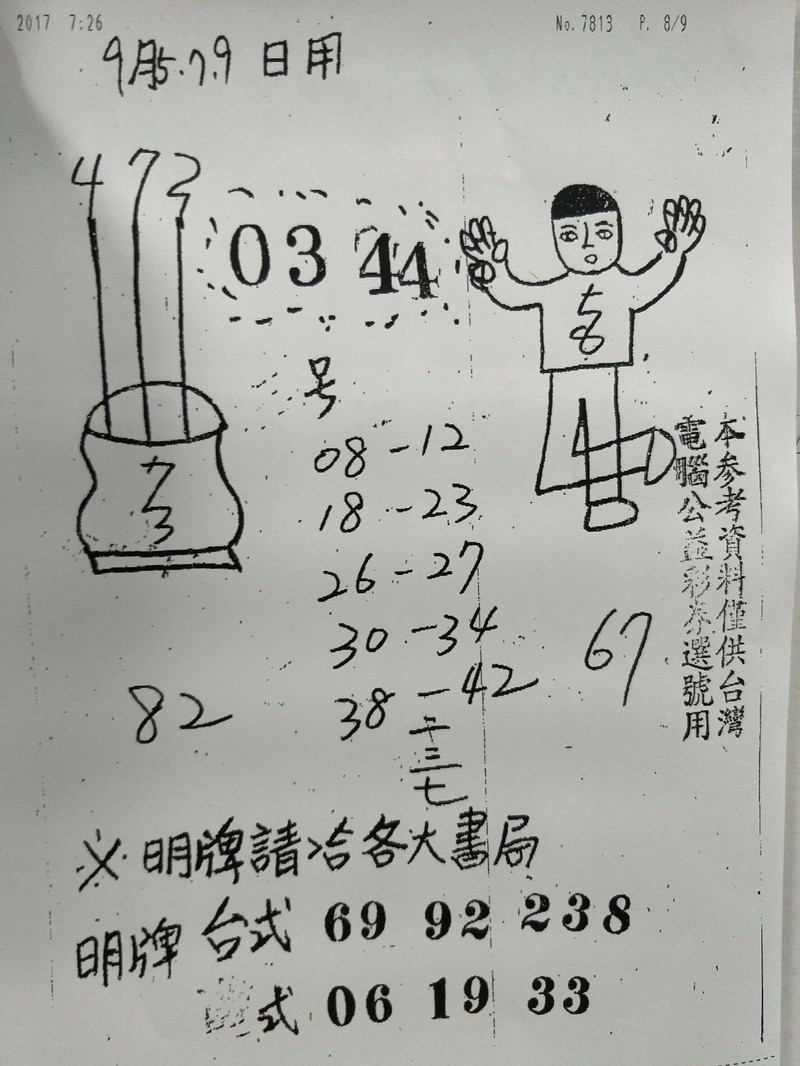 2017 7:26
No.7813 P. 8/9
9月5.7.9日用
4 7 2
03 44
号
08-12
18-23
26-27
30-34
38-42
二
三
七
3
8
82
67
本參考資料僅供台灣
電腦公益彩券選號用
※明牌請洽各大書局
明牌 台式 69 92 238
式 06 19 33